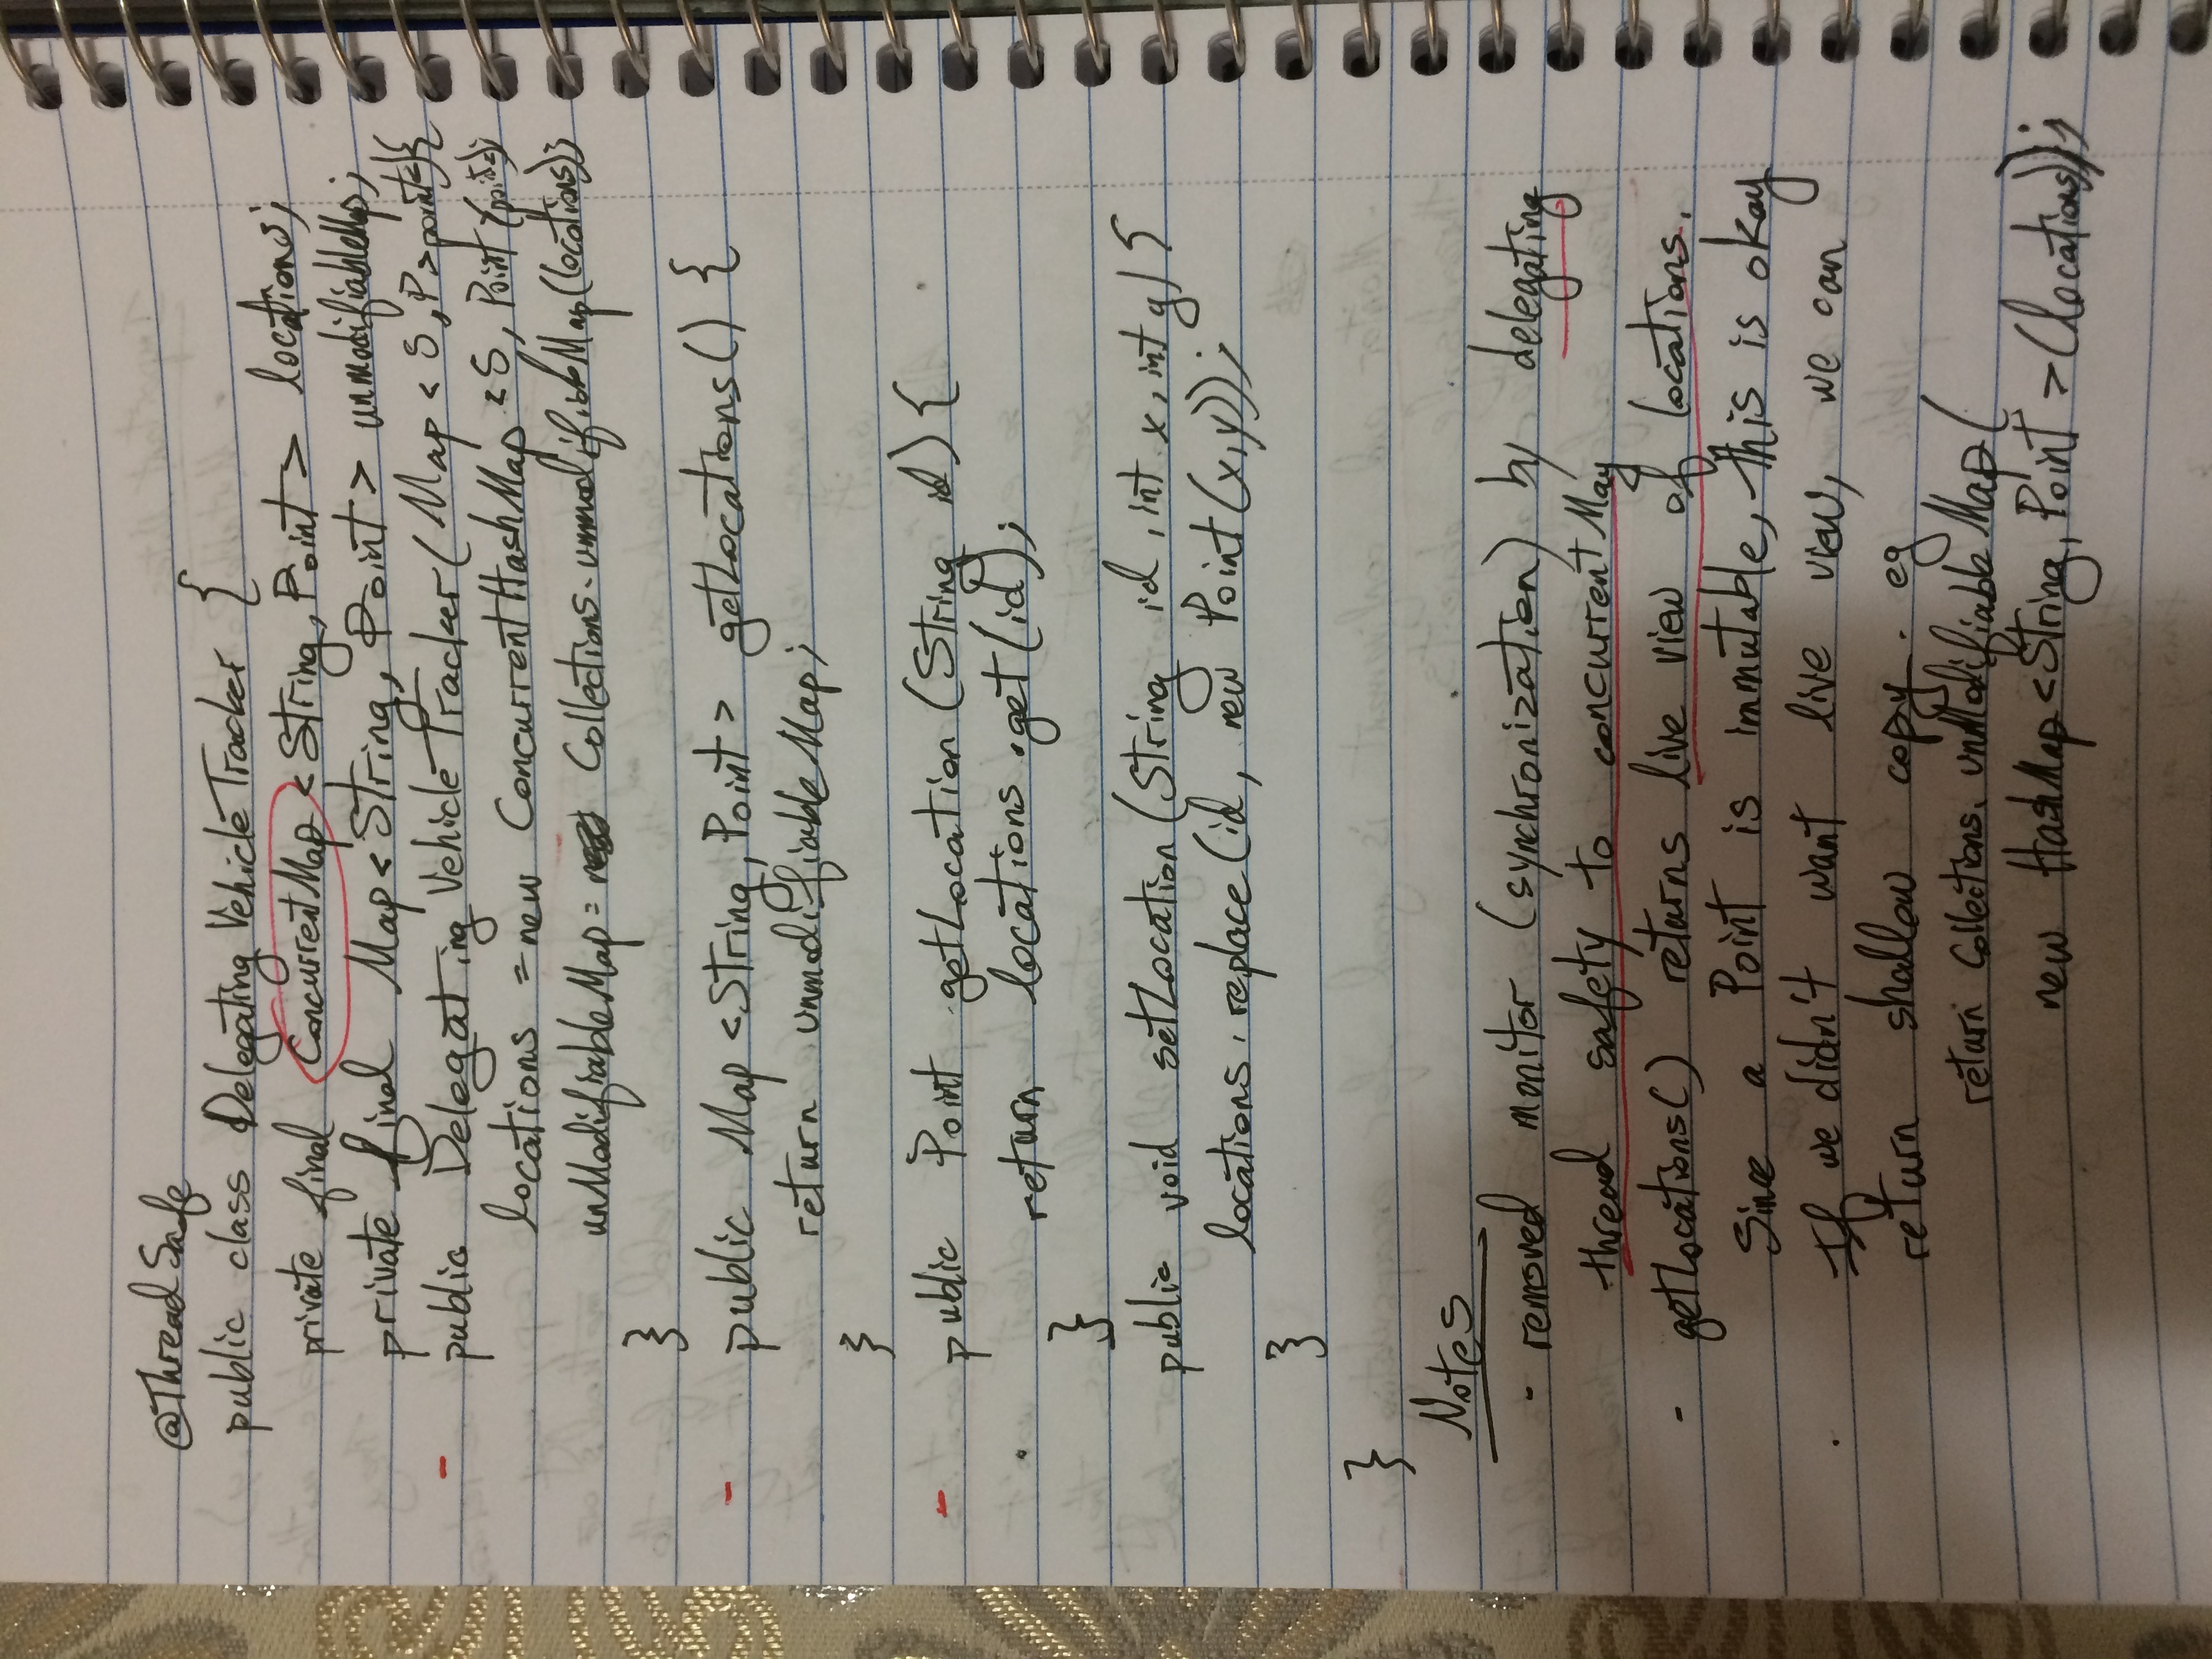 @ThreadSafe
public class DelegatingVehicleTracker {
private final ConcurrentMap<String, Point> locations;
private final Map<String, Point> unmodifiableMap;
- public DelegatingVehicleTracker(Map<S,P>points){
locations = new ConcurrentHashMap<S, Point>(points);
unModifiableMap = Collections.unmodifiableMap(locations);
}
- public Map<String, Point> getLocations() {
return unmodifiableMap;
}
- public Point getLocation (String id) {
return locations.get(id);
}
public void setLocation (String id, int x, int y) {
locations.replace(id, new Point(x,y));
}
}
Notes
- removed monitor (synchronization) by delegating
thread safety to concurrentMap
- getLocations() returns live view of locations.
Since a Point is immutable, this is okay
If we didn't want live view, we can
return shallow copy. eg
return Collections.unModifiableMap(
new HashMap<String, Point>(locations));